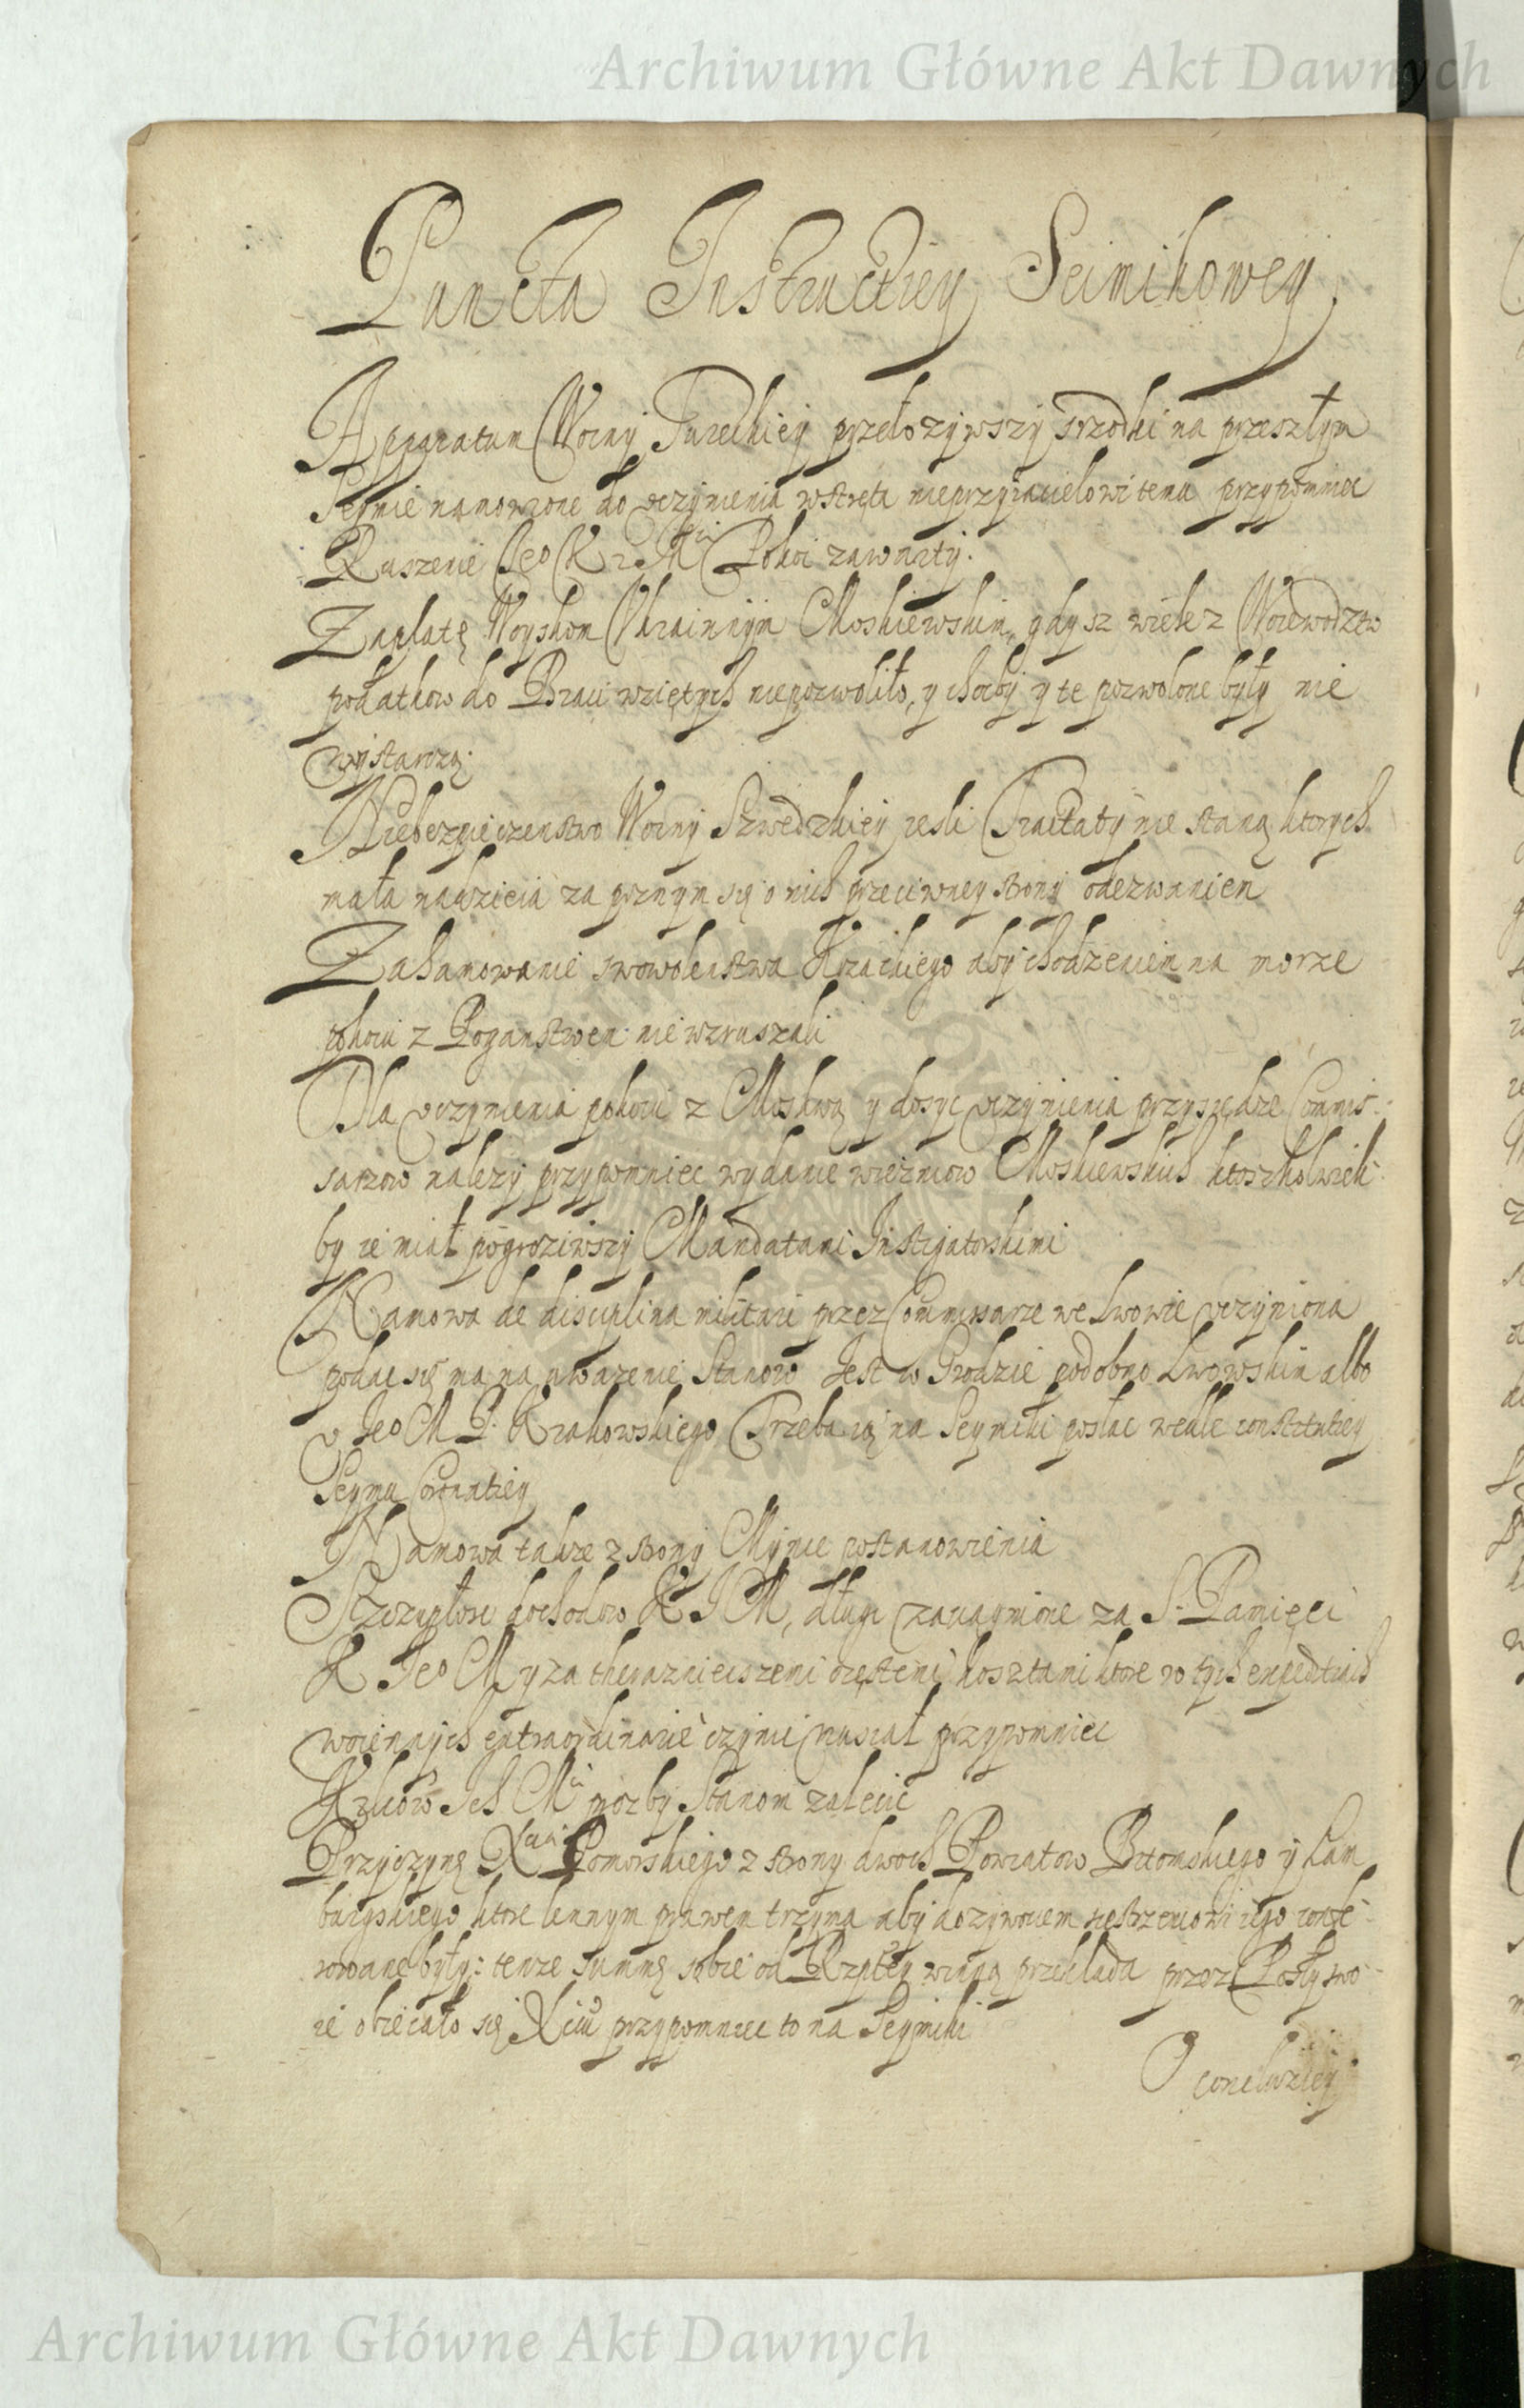 Archiwum Główne Akt Dawnych
Puncta Instructiey Seimikowey
Apparatum Woiny Tureckiey przełozywszy srzodki na przeszłym
Seymie namowione do uczynienia wstręta nieprzyiacielowi temu przypomniec
Ruszenie Jeo K. Mci Pokoi zawarty.
Zapłatę Woyskom Ukrainnym Moskiewskim, gdysz wiele z Woiewodztw
podatkow do Braci wziętych niepozwoliło, y choćby y te pozwolone były nie
wystarczą.
Niebezpieczenstwo Woiny Szwedzkiey iesli Tractaty nie staną ktorych
mała nadzieia za poznym się o nich przeciwney strony odezwaniem
Zahamowanie swowolenstwa Kozackiego aby chodzeniem na morze
pokoiu z Poganstwem nie wzruszali
Dla uczynienia pokoiu z Moskwą y dosyc uczynienia przysiędze Commis-
sarzow nalezy przypomniec wydanie więzniow Moskiewskich ktoszkolwiek
by ie miał pogroziwszy Mandatami Instigatorskimi
Namowa de disciplina militari przez Commissarze we Lwowie uczyniona
podac się ma na uwazenie Stanow Jest w Grodzie podobno Lwowskim albo
u Jeo M P. Krakowskiego Trzeba ią na Seymiki posłac wedle constitutiey
Seymu Coronatiey
Namowa takze z strony Mynice postanowienia
Szczupłosc dochodow K J M, długi zaciągnione za S. Pamięci
K Jeo M y za theraznieiszemi częstemi kosztami ktore w tych expeditiach
woiennych extraordinarie czynic musiał przypomniec
Krolewicow Ich Mci prozby Stanom zalecic
Przyczynę Xcia Pomorskiego z strony dwoch Powiatow Bitomskiego y Lam
burgskiego ktore lennym prawem trzyma aby dozywociem siestrzencowi iego confe-
rowane były: tenze summę sobie od Rzptey winną przekłada przez Posły swo-
ie obiecało się Xciu przypomniec to na Seymiki
O concluziey
Archiwum Główne Akt Dawnych